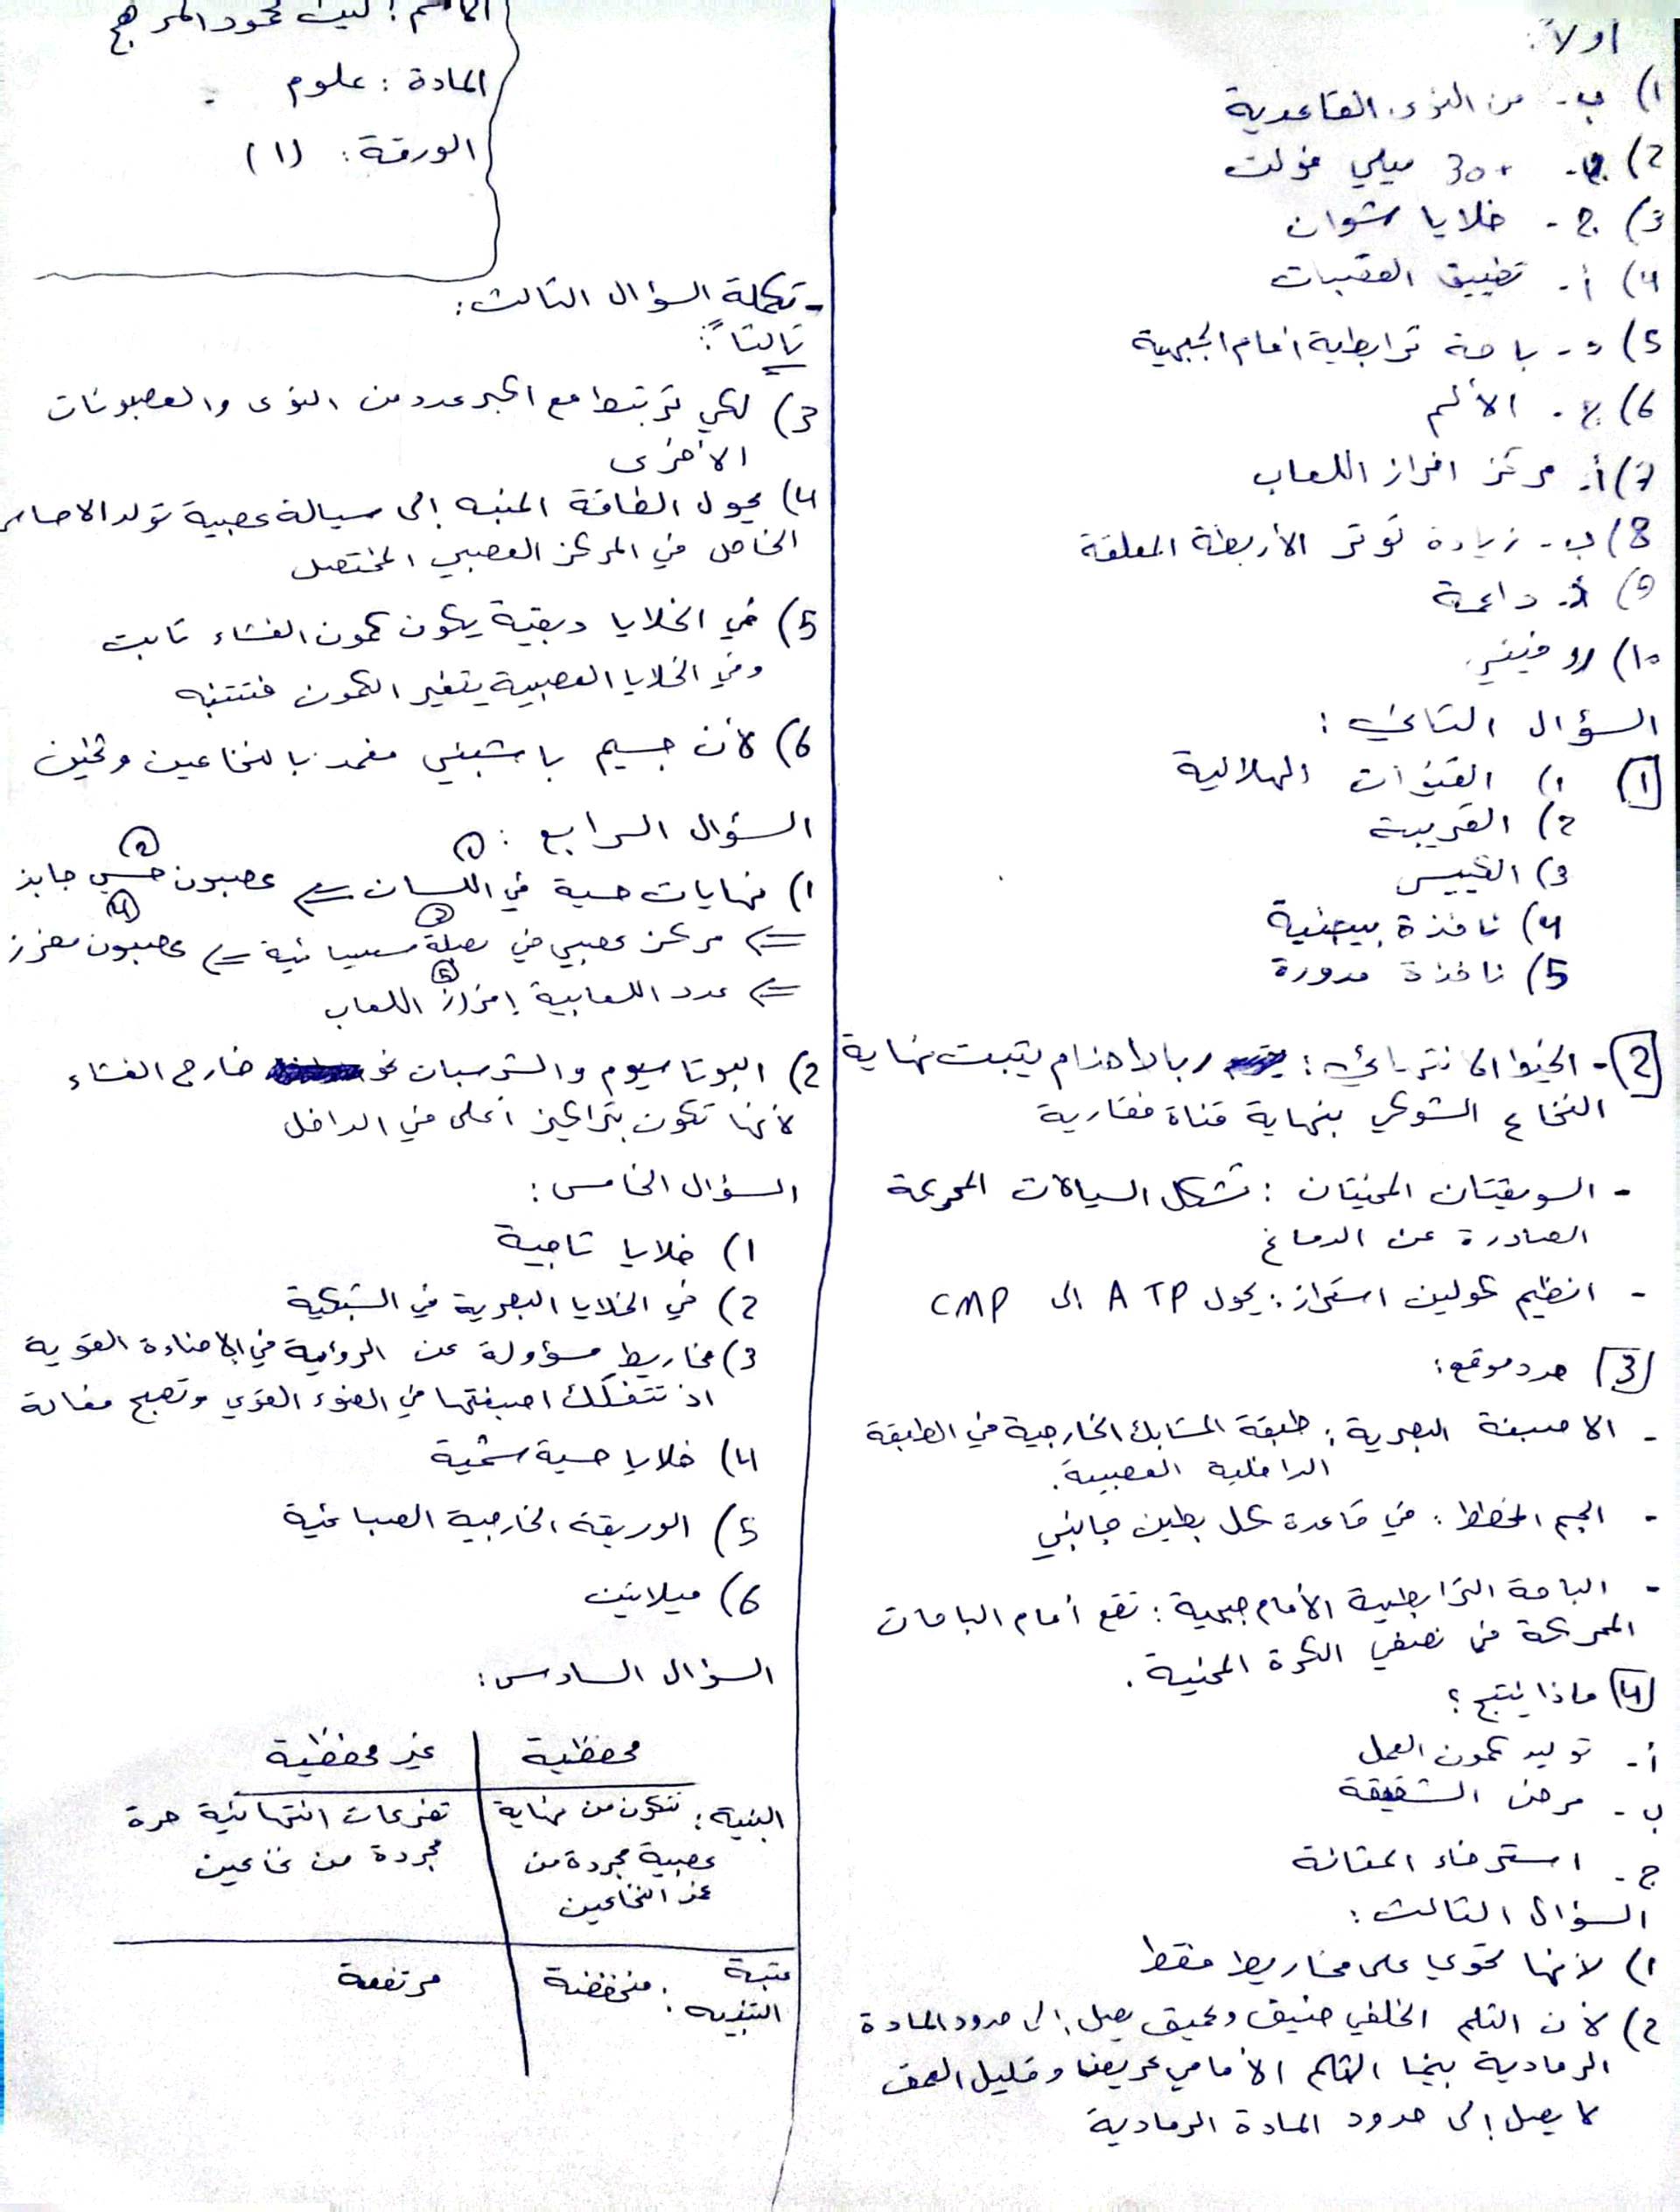 اولاً:
1) ب- من النوى القاعدية
2) ج- +30 ميلي فولت
3) ج- خلايا شوان
4) أ- تضييق القصبات
5) د- باحة ترابطية أمام الجبهية
6) ج- الألم
7) أ- مركز افراز اللعاب
8) ب- زيادة توتر الأربطة المعلقة
9) أ- داعمة
10) روفيني
السؤال الثاني:
1 1) القنوات الهلالية
2) القريبة
3) الكييس
4) نافذة بيضية
5) نافذة مدورة
2 - الخيط الانتهائي: رباط ضام يثبت نهاية
النخاع الشوكي بنهاية قناة فقارية
- السويقتان المخيتان: تشكل السيالات المحركة
الصادرة عن الدماغ
- انظيم كولين استراز: يحول ATP الى CMP
3 حدد موقع:
- الاصبغة البصرية: طبقة المشابك الخارجية في الطبقة
الداخلية العصبية.
- الجسم المخطط: في قاعدة كل بطين جانبي
- الباحة الترابطية الأمام جبهية: تقع أمام الباحات
المحركة في نصفي الكرة المخية.
4 ماذا ينتج؟
أ- توليد كمون العمل
ب- مرض الشقيقة
ج- استرخاء المثانة
السؤال الثالث:
1) لأنها تحوي على مخاريط فقط
2) لأن الثلم الخلفي ضيق وعميق يصل إلى حدود المادة
الرمادية بينما الثلم الأمامي عريض وقليل العمق
لا يصل إلى حدود المادة الرمادية
الاسم: ليث محمود المرهج
المادة: علوم
الورقة: (1)
- تكملة السؤال الثالث:
ثالثاً:
3) لكي ترتبط مع اكبر عدد من النوى والعصبونات
الأخرى
4) يحول الطاقة المنبه إلى سيالة عصبية تولد الاحساس
الخاص في المركز العصبي المختص
5) في الخلايا دبقية يكون كمون الغشاء ثابت
وفي الخلايا العصبية يتغير الكمون فتتنبه
6) لأن جسيم باشيني مغمد بالنخاعين وثخين
السؤال الرابع:
1) نهايات حسية في اللسان ① ⇐ عصبون حسي جابذ ②
⇐ مركز عصبي في بصلة سيسائية ③ ⇐ عصبون مفرز ④
⇐ غدد اللعابية إفراز اللعاب ⑤
2) البوتاسيوم والشرسبات نحو خارج الغشاء
لأنها تكون بتراكيز أعلى في الداخل
السؤال الخامس:
1) خلايا تاجية
2) في الخلايا البصرية في الشبكية
3) مخاريط مسؤولة عن الرؤية في الإضاءة القوية
اذ تتفكك اصبغتها في الضوء القوي وتصبح فعالة
4) خلايا حسية شمية
5) الوريقة الخارجية الصباغية
6) ميلانين
السؤال السادس:
محفظية غير محفظية
البنية: تتكون من نهاية تفرعات انتهائية حرة
عصبية مجردة من مجردة من نخاعين
غمد النخاعين
عتبة منخفضة مرتفعة
التنبيه: